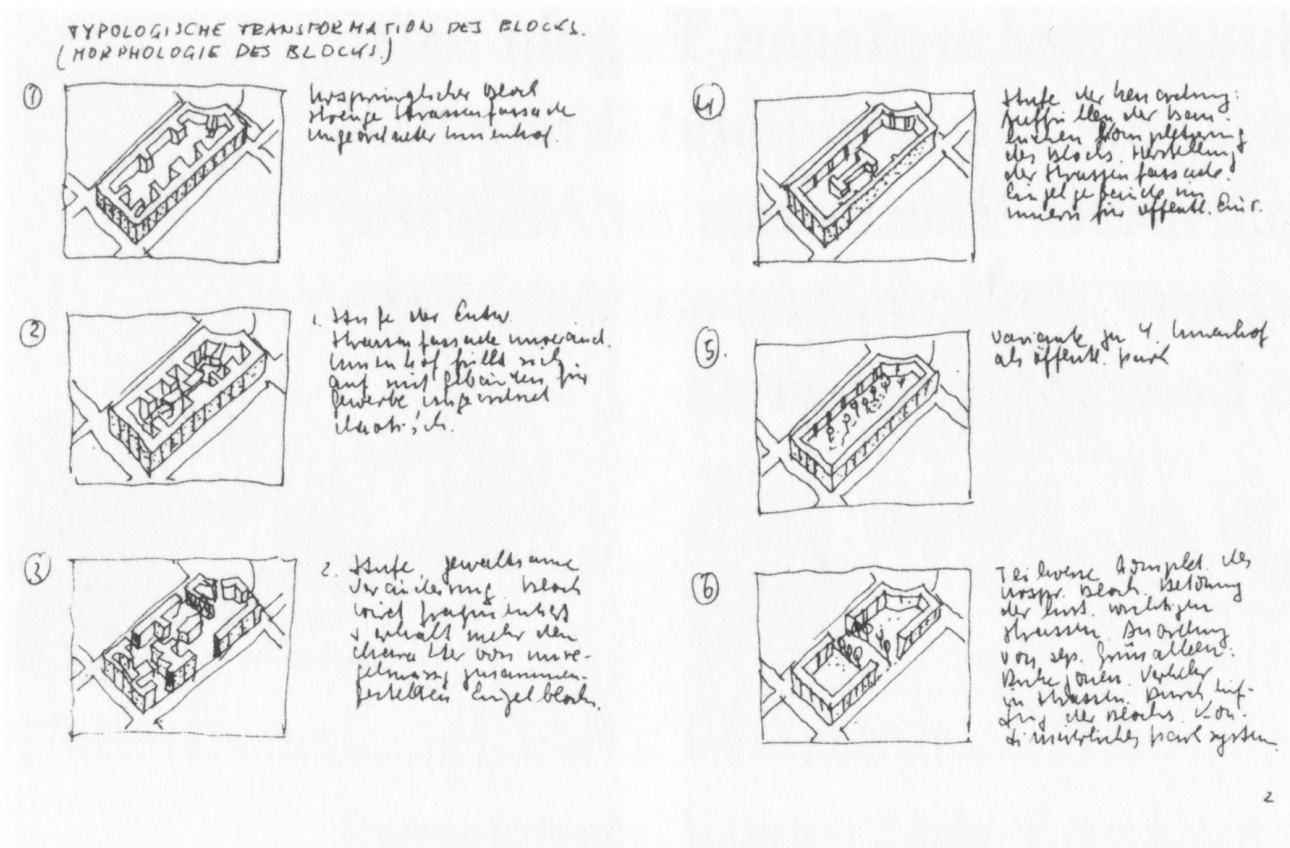 TYPOLOGISCHE TRANSFORMATION DES BLOCKS.
(MORPHOLOGIE DES BLOCKS.)
1
Ursprünglicher Block
strenge Strassenfassade
ungeordneter Innenhof.
2
1. Stufe der Entw.
Strassenfassade unveränd.
Innenhof füllt sich
auf mit Gebäuden für
Gewerbe, ungeordnet
chaotisch.
3
2. Stufe gewaltsame
Veränderung Block
wird fragmentiert
+ erhält mehr den
Charakter von unre-
gelmässig zusammen-
gestellten Einzelblock.
4
Stufe der Neuordnung:
Auffüllen der Bau-
lücken Komplettierung
des Blocks. Herstellung
der Strassenfassade.
Einzelgebäude im
Innern für öffentl. Einr.
5.
Variante zu 4. Innenhof
als öffentl. Park
6
Teilweise Komplet. des
urspr. Block. Betonung
der hist. wichtigen
Strassen Anordnung
von sep. Grünalleen.
Verkehr
in Strassen. Durch
der Blocks. Kon-
tinuierliches Parksystem
2